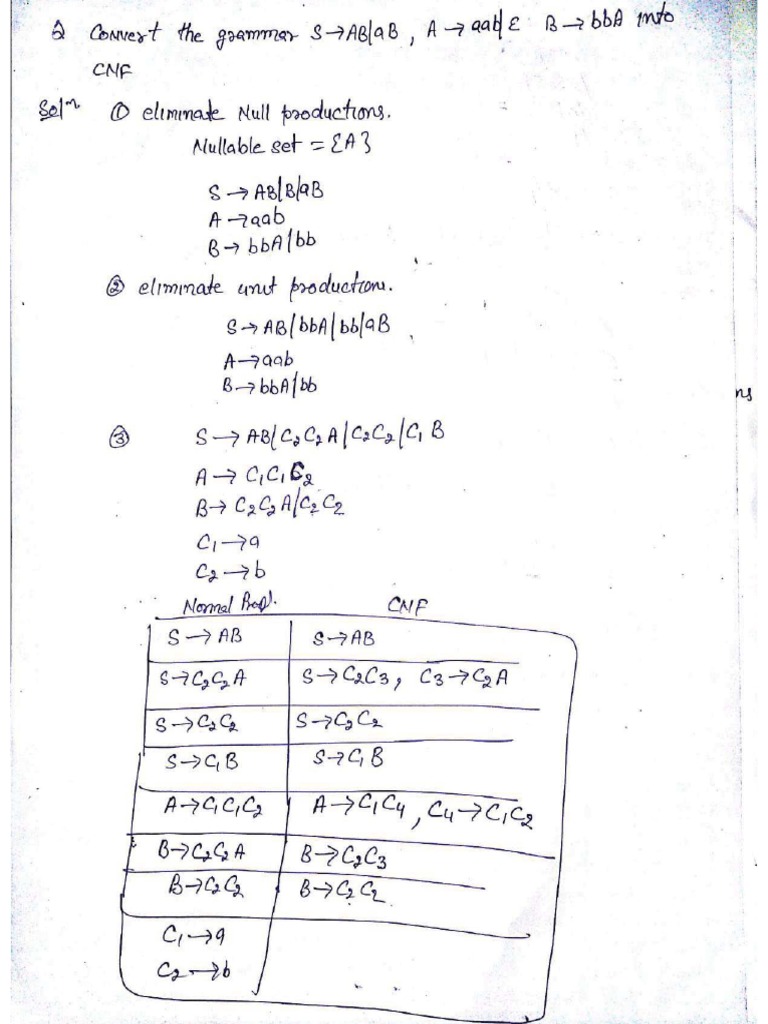 2 Convert the grammar S→AB|aB, A→aab|ε B→bbA into
CNF
Solⁿ. ① eliminate Null productions.
Nullable set = {A}
S→AB|B|aB
A→aab
B→bbA|bb
② eliminate unit productions.
S→AB|bbA|bb|aB
A→aab
B→bbA|bb
ns
③ S→AB|C₂C₂A|C₂C₂|C₁B
A→C₁C₁C₂
B→C₂C₂A|C₂C₂
C₁→a
C₂→b
Normal Prod. CNF
S→AB S→AB
S→C₂C₂A S→C₂C₃, C₃→C₂A
S→C₂C₂ S→C₂C₂
S→C₁B S→C₁B
A→C₁C₁C₂ A→C₁C₄, C₄→C₁C₂
B→C₂C₂A B→C₂C₃
B→C₂C₂ B→C₂C₂
C₁→a
C₂→b